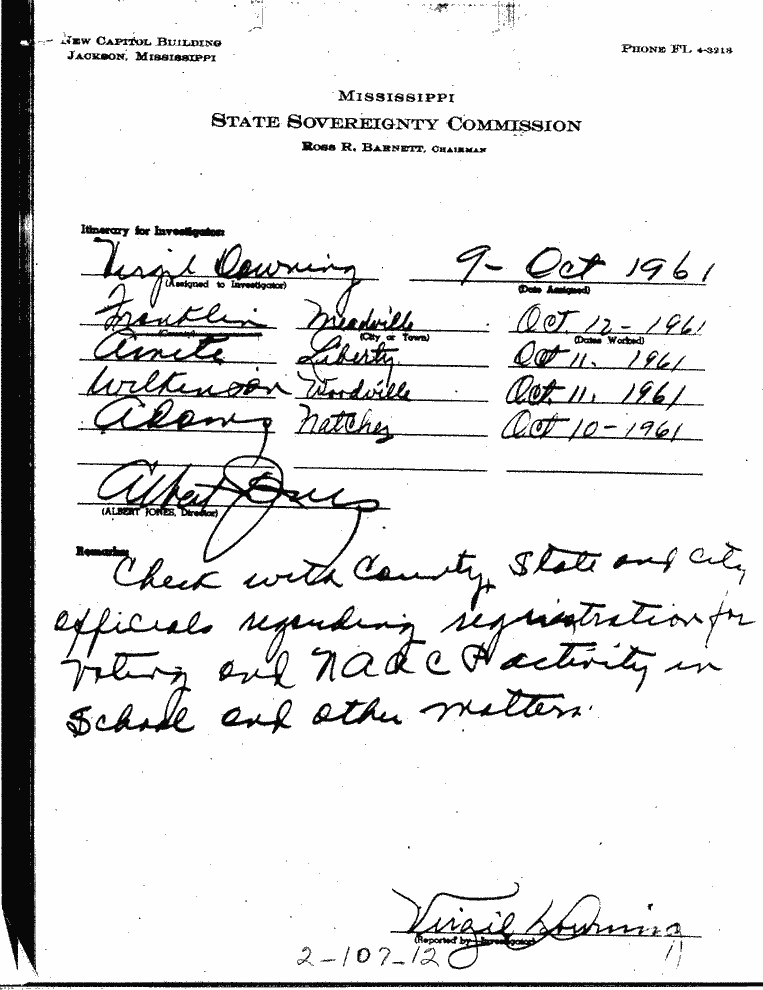 New Capitol Building
Jackson, Mississippi
Phone FL 4-3218
Mississippi
State Sovereignty Commission
Ross R. Barnett, Chairman
Itinerary for Investigator:
Virgil Downing 9- Oct 1961
(Assigned to Investigator) (Date Assigned)
Franklin Meadville Oct. 12-1961
(County) (City or Town) (Dates Worked)
Amite Liberty Oct 11. 1961
Wilkinson Woodville Oct. 11. 1961
Adams Natchez Oct 10-1961
Albert Jones
(ALBERT JONES, Director)
Remarks:
Check with County, State and City
officials regarding registration for
voting and NAACP activity in
School and other matters.
Virgil Downing
(Reported by - Investigator)
2-107-12